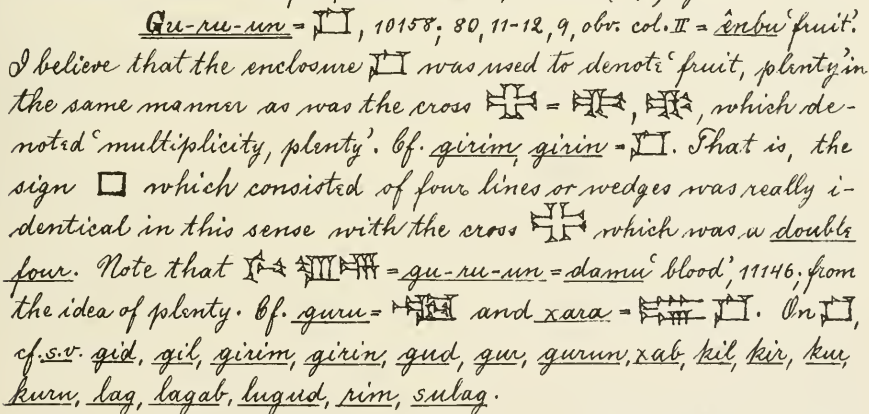 Gu-ru-un = 𒆸, 10158; 80, 11-12, 9, obv. col. II = ênbu ‘fruit’.
I believe that the enclosure 𒆸 was used to denote ‘fruit, plenty’ in
the same manner as was the cross = , , which de-
noted ‘multiplicity, plenty’. Cf. girim, girin = 𒆸. That is, the
sign □ which consisted of four lines or wedges was really i-
dentical in this sense with the cross which was a double
four. Note that = gu-ru-un = damu ‘blood’, 11146, from
the idea of plenty. Cf. guru = and xara = 𒆸. On 𒆸,
cf. s.v. gid, gil, girim, girin, gud, gur, gurun, xab, kil, kir, kur,
kurn, lag, lagab, lugud, rim, sulag.